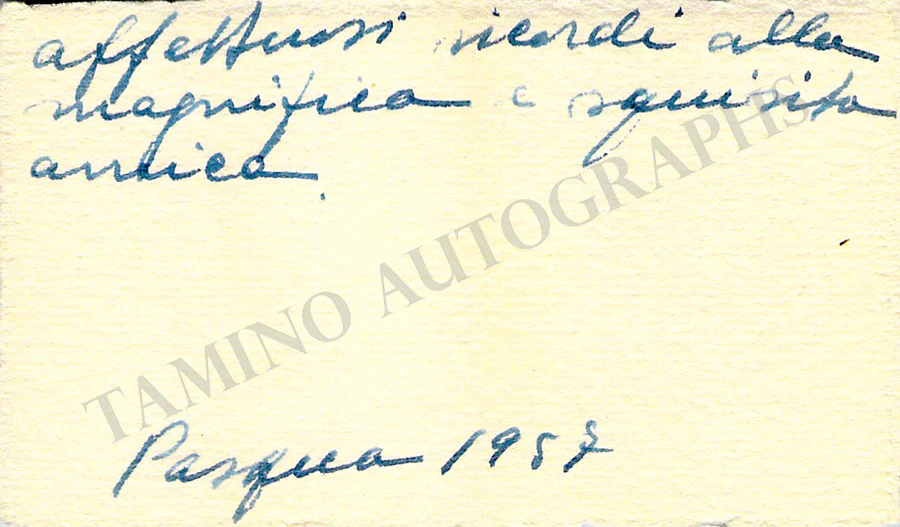 affettuosi ricordi alla
magnifica e squisita
amica.
Pasqua 1957
TAMINO AUTOGRAPHS